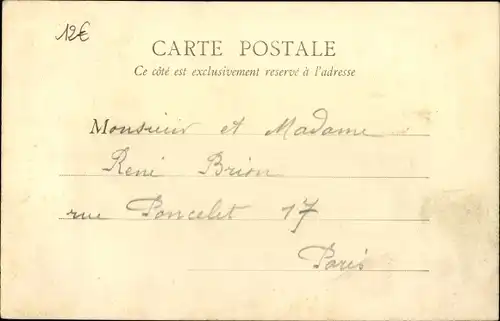 12€
CARTE POSTALE
Ce côté est exclusivement reservé à l'adresse
Monsieur et Madame
René Brion
rue Poncelet 17
Paris